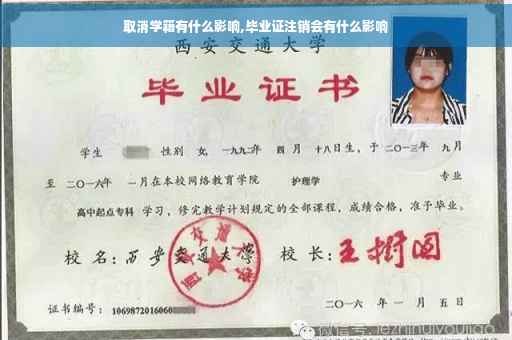 取消学籍有什么影响,毕业证注销会有什么影响
西安交通大学
毕业证书
学生 性别 女, 一九九二年 四月 十八日生, 于二〇一三年 九月
至 二〇一六年 一月在本校网络教育学院 护理学 专业
高中起点专科 学习, 修完教学计划规定的全部课程, 成绩合格, 准予毕业。
校名: 西安交通大学 校长: 王树国
西安交通大学
证书编号: 1069872016060
二〇一六年 一月 五日
微信号: jezhinuiyoujiao